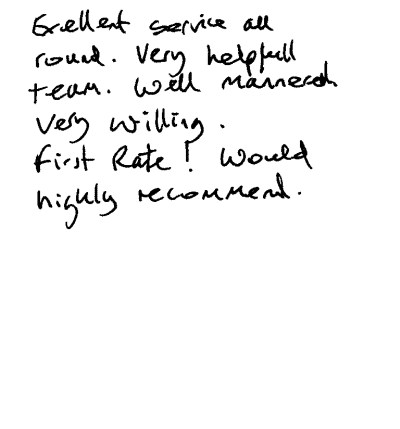 Excellent service all
round. Very helpfull
team. Well mannered
Very willing.
First Rate! Would
highly recommend.